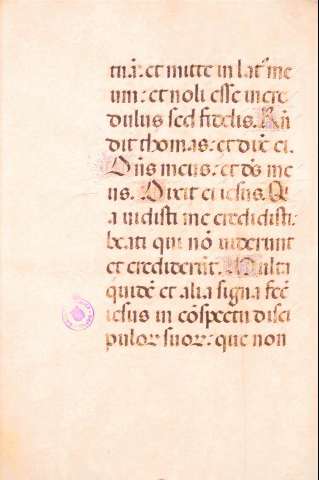 tuā: et mitte in latꝰ me
um: et noli esse incre
dulus sed fidelis. Rn̄
dit thomas: et dix̄ ei.
Dn̄s meus: et dē me
us. Dixit ei iesus. Q̄
a uidisti me credidisti:
beati qui nō uiderunt
et crediderūt. Multa
quidē et alia signa fec̄
iesus in cōspectu disci
puloꝝ suoꝝ: que non